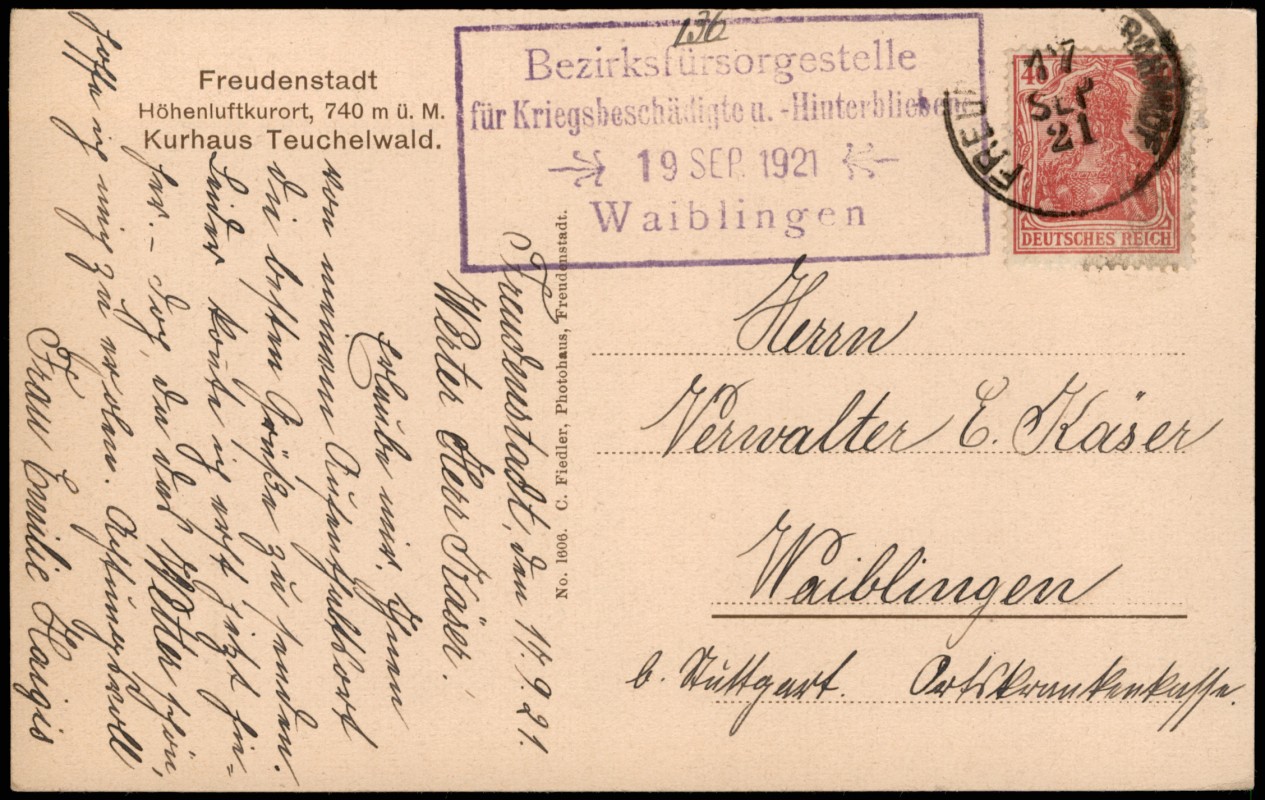 Freudenstadt
Höhenluftkurort, 740 m ü. M.
Kurhaus Teuchelwald.
136
Bezirksfürsorgestelle
für Kriegsbeschädigte u. -Hinterbliebene
19 SEP. 1921
Waiblingen
BAHNHOF
17
SEP
21
40
DEUTSCHES REICH
No. 1606. C. Fiedler, Photohaus, Freudenstadt.
Freudenstadt, den 17.9.21.
Werter Herr Käser!
Erlaube mir, Ihnen
von meinem Aufenthaltsort
die besten Grüße zu senden.
Leider konte ich erst jetzt hie-
her. – Doch, da das Wetter schön,
hoffe ich mich zu erholen. Achtungsvoll
Frau Emilie Haigis
Herrn
Verwalter E. Käser
Waiblingen
b. Stuttgart. Ortskrankenkasse.